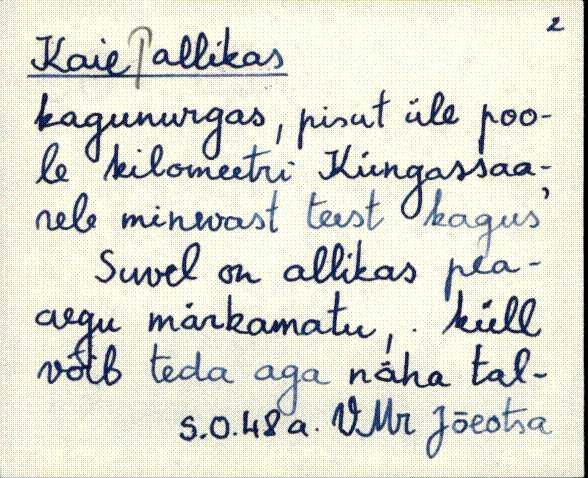 2
Kaie allikas
kagunurgas, pisut üle poo-
le kilomeetri Küngassaa-
rele minevast teest kagus'
Suvel on allikas pea-
aegu märkamatu, . küll
võib teda aga näha tal-
S.O.48 a. VMr Jõeotsa